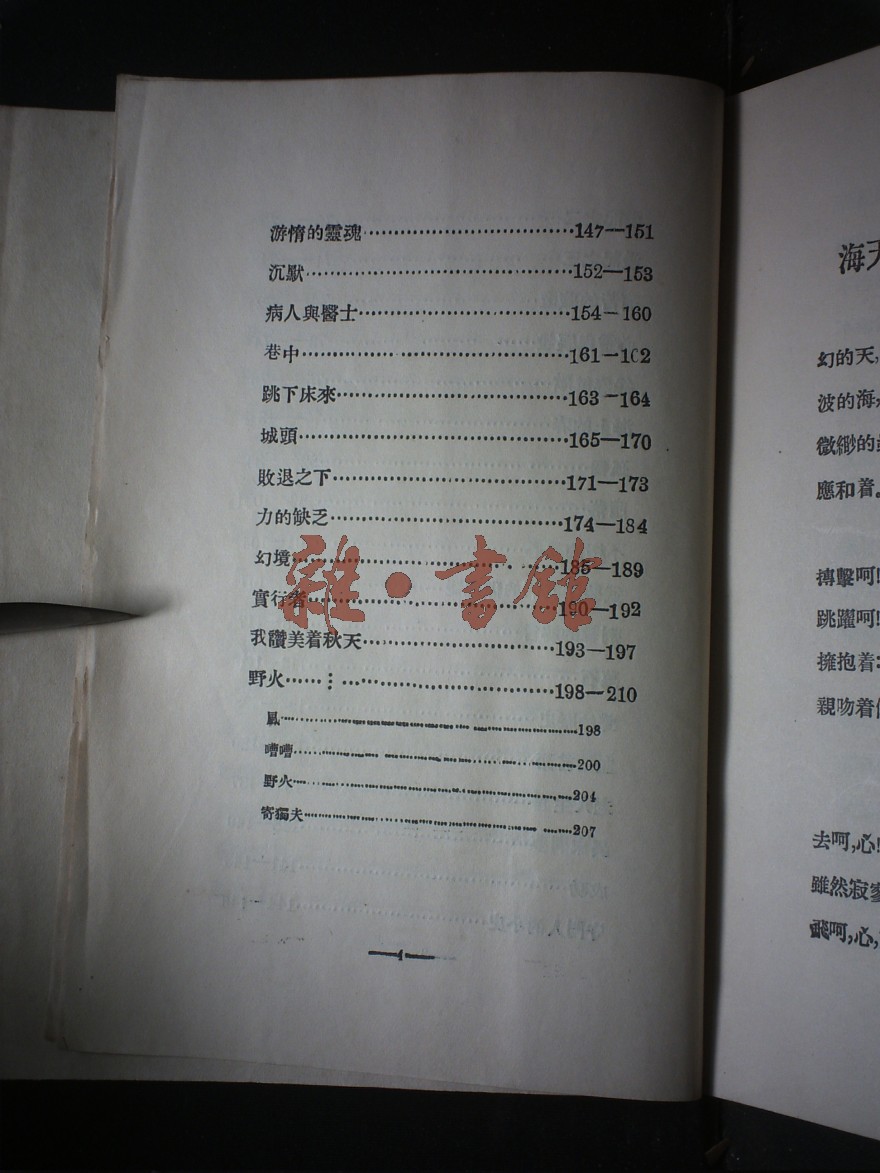 游惰的靈魂……147—151
沉默……152—153
病人與醫士……154—160
巷中……161—1C2
跳下床來……163—164
城頭……165—170
敗退之下……171—173
力的缺乏……174—184
幻境……185—189
實行者……190—192
我讚美着秋天……193—197
野火……198—210
風……198
嘈嘈……200
野火……204
寄獨夫……207
雜·書館
海天
幻的天,
波的海,
微緲的
應和着。
搏擊呵!
跳躍呵!
擁抱着:
親吻着
去呵,心!
雖然寂寥
飛呵,心,